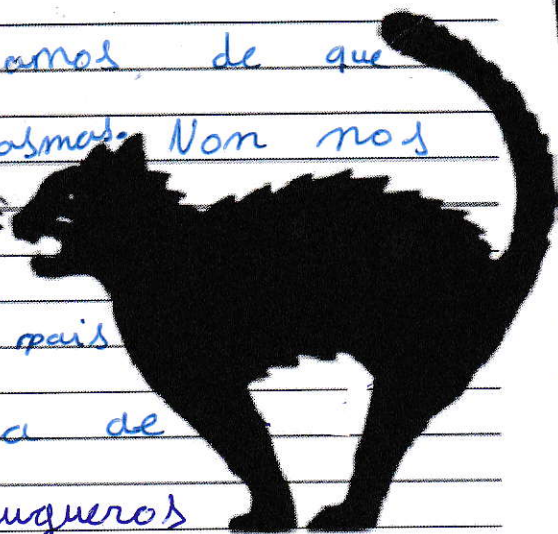 amos de que
asmas. Non nos
pais
a de
ugueros